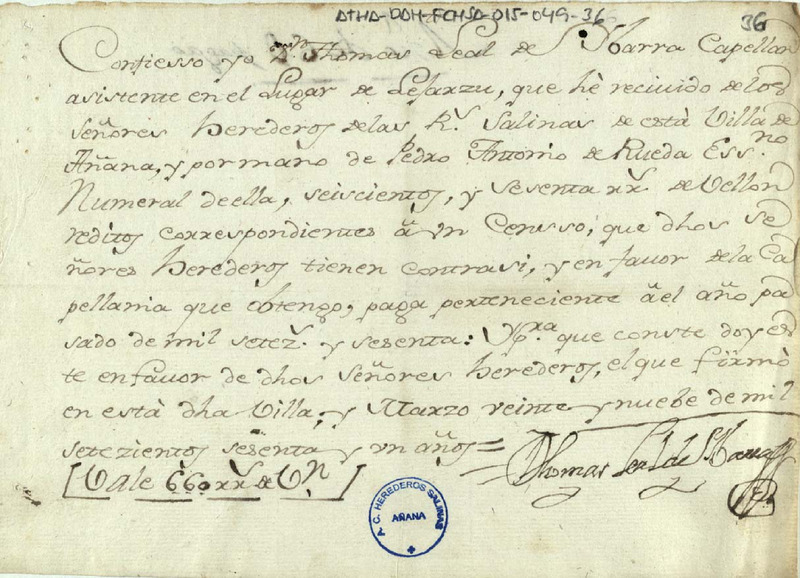 ATHA-DAH-FCHSA-015-049-36
36
Confiesso yo Dn. Thomas Leal de S. Ybarra Capellan
asistente en el Lugar de Lejarzu, que hè recivido de los
señores herederos de las Rs. Salinas de està Villa de
Añana, y por mano de Pedro Antonio de Rueda Essno.
Numeral de ella, seiscientos, y sesenta rrs. de Vellon
reditos correspondientes â un Censso, que dhos Se
ñores herederos tienen contra si, y en favor de la Ca
pellania que obtengo, paga perteneciente â el año pa
sado de mil setezs. y sesenta: Y para. que conste doy es
te en favor de dhos señores herederos, el que firmò
en està dha Villa, y Marzo veinte y nuebe de mil
setezientos sesenta y un años =
Thomas Leal de Ybarra
[Vale 660 rrs. de Vn]
A. C. HEREDEROS SALINAS
AÑANA